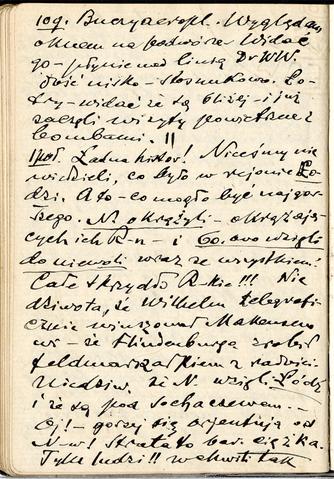 10g. Buczy aeropl. Wyglądam
oknem na podwórze. Widać
go – płynie nad linją Dr WW.
Dość nisko – stosunkowo. Lo-
try – widać że są bliżej – i już
zaczęli wizyty powietrzne z
bombami. !!
1 poł. Ładna histor! Nicśmy nie
wiedzieli, co było w rejonie Ło-
dzi. A to – co mogło być najgor-
szego. N. okrążyli – okrążają-
cych ich R-n – i 60.000 wzięli
do niewoli wraz ze wszystkiem!
Całe skrzydło R-kie!!! Nie
dziwota, że Wilhelm telegrafi-
cznie winszował Makenseno
wi – że Hindenburga zrobił
feldmarszałkiem z radości.
Niedziw. że N. wzięli Łódź
i że są pod Sochaczewem. –
Oj! – gorzej się orjentują od
N-w! Strata to bar. ciężka.
Tylu ludzi!! w chwili tak